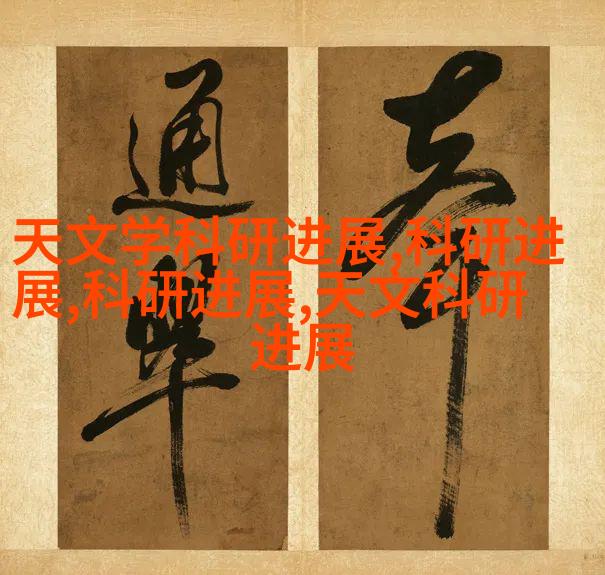 天文学科研进展,科研进
展,科研进展,天文科研
进展
通